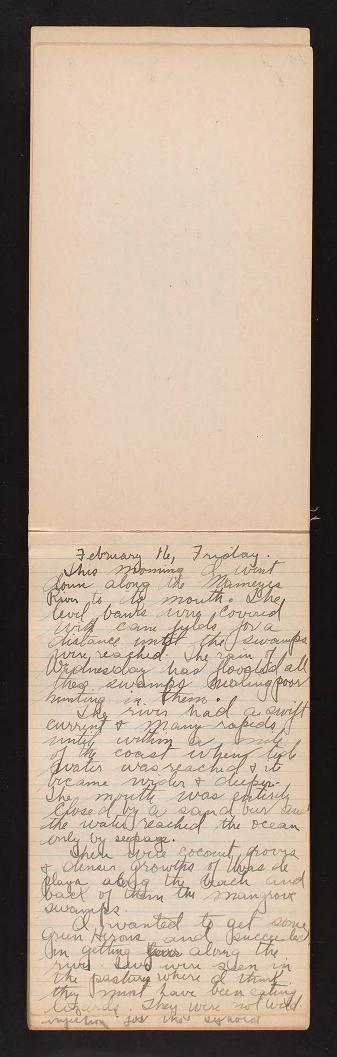 February 16, Friday.
This morning I went
down along the Mameyes
River to its mouth. The
level banks were covered
with cane fields for a
distance until the swamps
were reached. The rain of
Wednesday has flooded all
these swamps making poor
hunting in them.
The river had a swift
current & many rapids
until within a mile
of the coast when tide
water was reached & it
became wider & deeper.
The mouth was entirely
closed by a sand bar and
the water reached the ocean
only by seepage.
There were coconut groves
& dense growths of Uvas de
playa along the beach and
back of them the mangrove
swamps.
I wanted to get some
Green Herons and succeeded
in getting four along the
river. Two were seen in
the pasture where I think
they must have been eating
lizards. They were not wild
for the